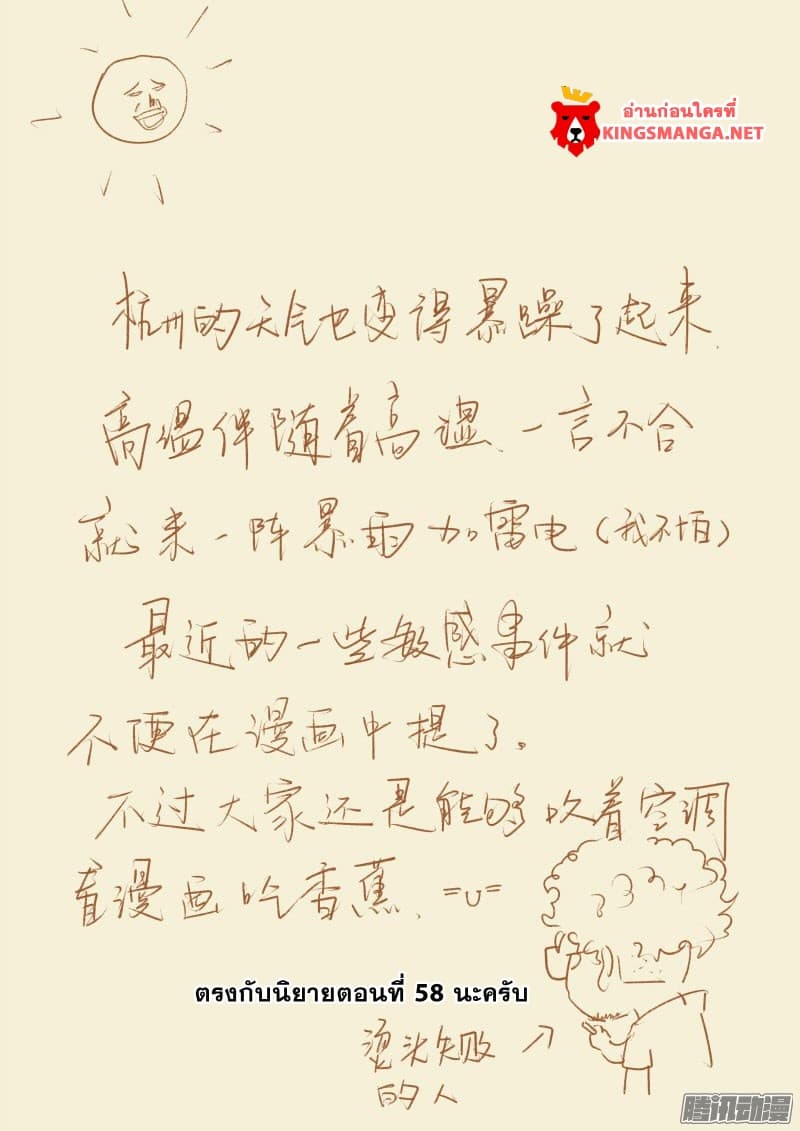 อ่านก่อนใครที่
KINGSMANGA.NET
杭州的天气也变得暴躁了起来.
高温伴随着高湿、一言不合
就来一阵暴雨加雷电(我不怕)
最近的一些敏感事件就
不便在漫画中提了。
不过大家还是能够吹着空调
看漫画吃香蕉、=∪=
ตรงกับนิยายตอนที่ 58 นะครับ
烫头失败
的人
腾讯动漫